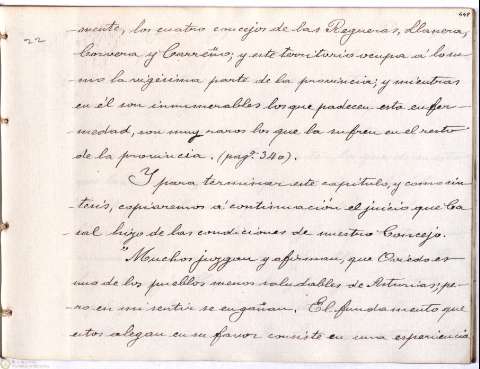 22
mente, los cuatro concejos de las Regueras, Llanera,
Corvera y Carreño; y este territorio ocupa á lo su-
mo la vigésima parte de la provincia; y mientras
en él son innumerables los que padecen esta enfer-
medad, son muy raros los que la sufren en el resto
de la provincia. (pagª. 340).
Y para terminar este capítulo, y como sín-
tesis, copiaremos á continuación el juicio que Ca-
sal hizo de las condiciones de nuestro Concejo.
"Muchos juzgan y afirman, que Oviedo es
uno de los pueblos menos saludables de Asturias; pe-
ro en mi sentir se engañan. El fundamento que
estos alegan en su favor consiste en una experiencia